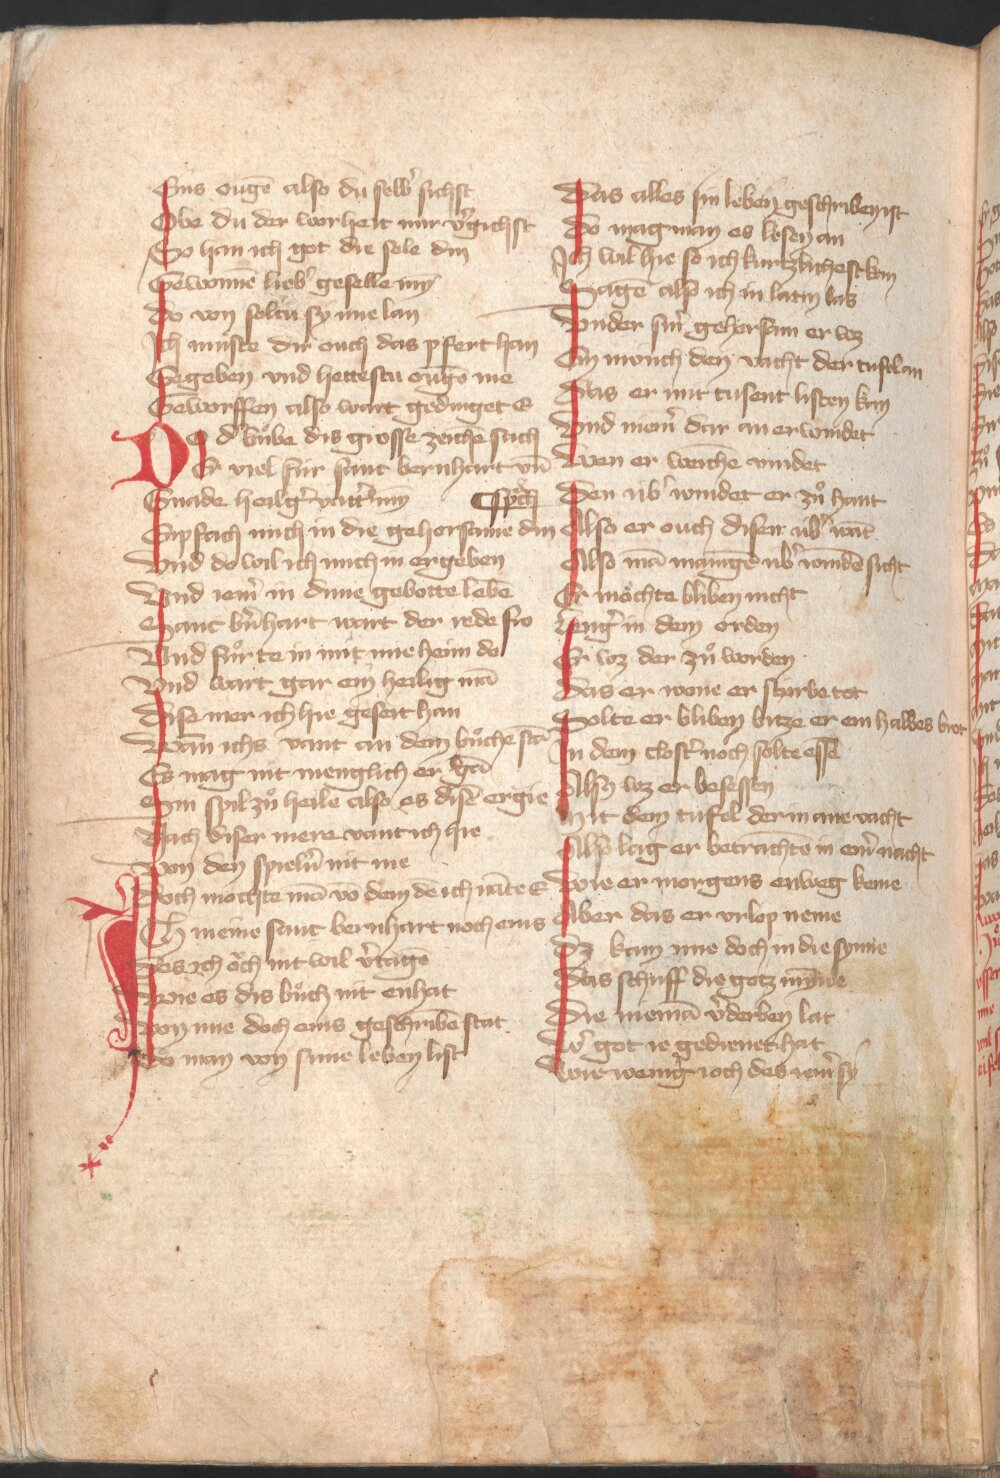 Eins ougē also du selbˀ sichst
Obe du der worheit mir vˀgichst
So han ich got die sele din
Gewonnē liebˀ geselle mȳ
Do von soltu sy mie lan
Ich muste dir ouch das pfert han
Gegeben vnd hettestu ougē me
Geworffen also wart gedinget e
DO dˀ bůbe dis grosse zeichē sach
Er viel für sant bernhart vn̄
Gnade heilgˀ vattˀ mȳ sprͦch
Enpfach mich in die gehorsame din
Vnd do wil ich mich in ergeben
Vnd iemˀ in dime gebotte lebē
Sant bˀnhart wart der rede fro
Vnd fůrte in mit ime heim do
Vnd wart gar ein heilig mā
Dise mer ich hie geseit han
Wan ichs vant an dem bůche stā
Es mag nit menglich er gā
Ein spil zů heile also es disē ergie
Nach diser mere vant ich hie
Von den spielˀn nit me
Doch mochte mā vō dem de ich nāte e
ICh meine sant bernhart noch eins
Des ich ŏch nit wil vˀtagē
Wie es dis bůch nit enhat
Von ime doch eins geschribē stat
Do man von sime leben list
Das alles sin leben geschriben ist
Do mag man es lesen an
Ich wil hie so ich kurtzlichest kan
Sagē alß ich in latin las
Vnder sinˀ gehorsam er waz
Ein münch den vacht der tufel an
Das er mit tusent listen kan
Vnd niemˀ dar an erwindet
Wen er weichē vindet
Den übˀ windet er zů hant
Also er ouch disen übˀ wāt
Also mā manigē übˀ windē sicht
Er mŏchte bliben nicht
Lengˀ in dem orden
Er waz der zů worden
Das er wene er sturbe tot
Solte er bliben bitze er ein halbes brot
In dem clostˀ noch solte essē
Alsus waz er besessen
Mit dem tufel der in ane vacht
Alß lag er betrachtē in einˀ nacht
Wie er morgens enweg keme
Aber das er vrlop neme
Dz kam ime doch in die synne
Das schuff die gotz mȳne
Die niemā vˀderben lat
Wˀ got ie gedienet hat
Wie wenig ioch des iemˀ sy